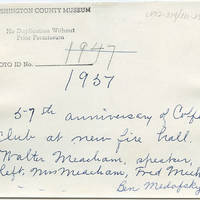 SHINGTON COUNTY MUSEUM
No Duplication Without
Prior Permission
1947
OTO ID No.
1957
57th anniversary of
Club at new fire hall.
Walter Meacham, speaker,
left, Mrs Meacham, Fred
Ben Medofsky